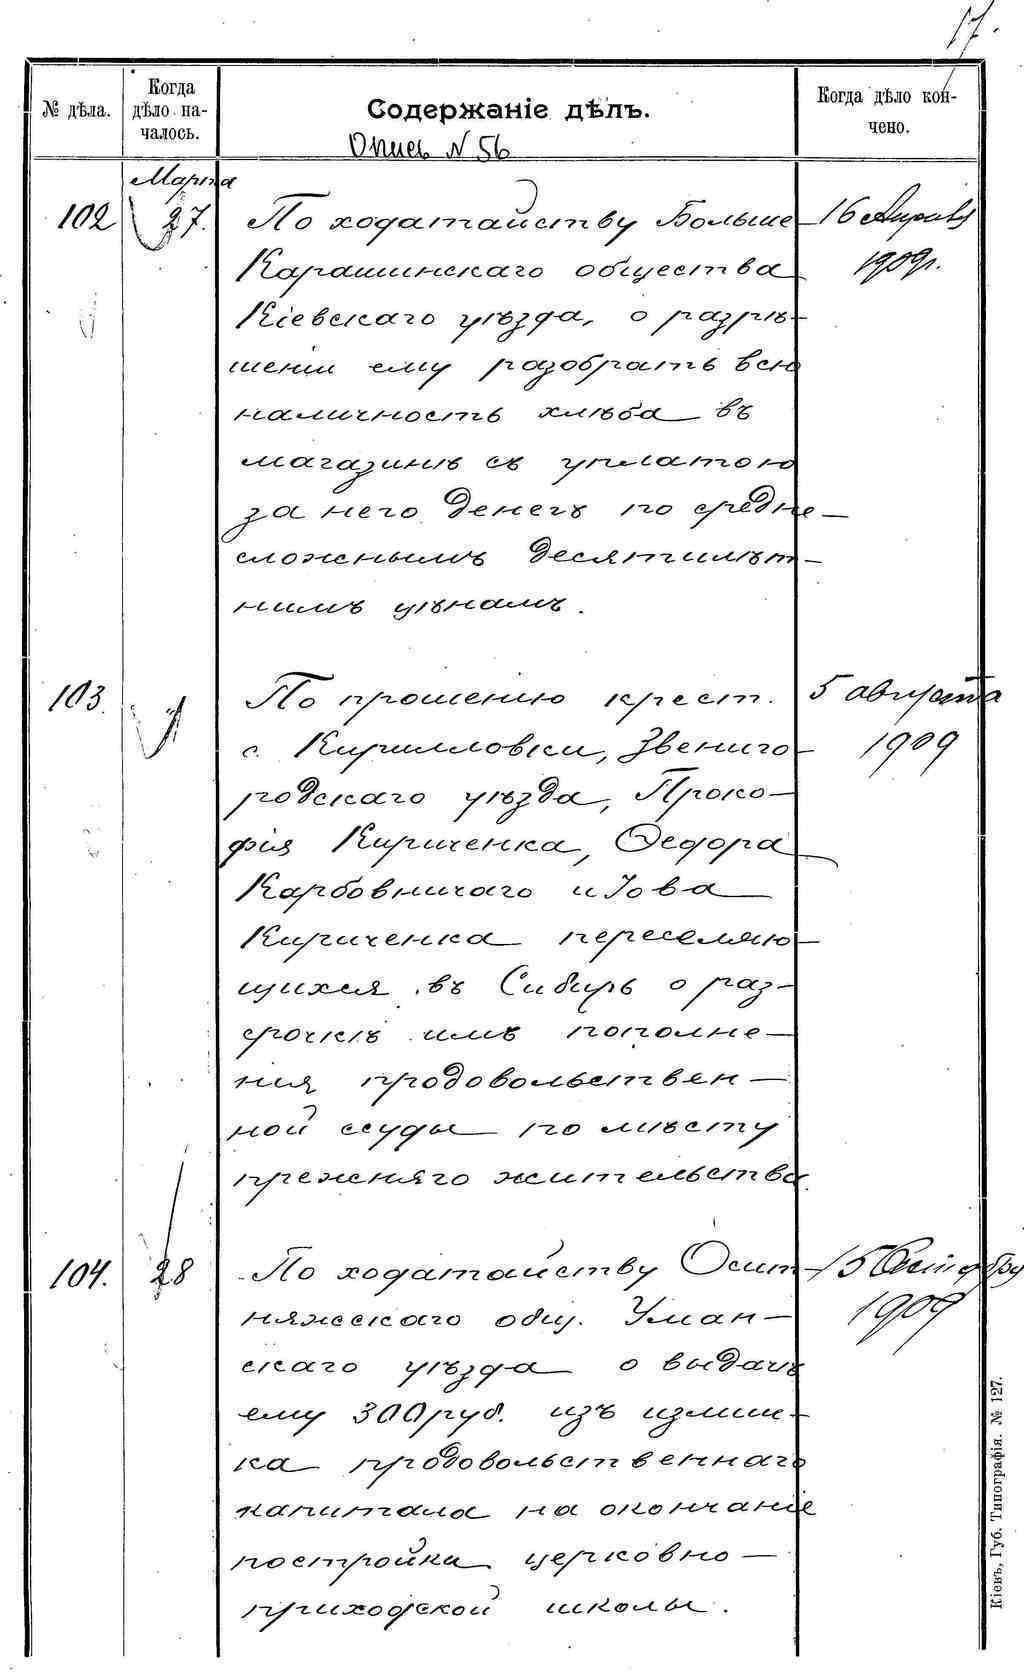 17.
№ дѣла.
Когда дѣло на-чалось.
Содержаніе дѣлъ.
Когда дѣло кон-чено.
Опись N 56
Марта
102 27. По ходатайству Больше- 16 Апрѣля
Карашинскаго общества 1909г.
Кіевскаго уѣзда, о разрѣ-
шеніи ему разобрать всю
наличность хлѣба въ
магазинѣ съ уплатою
за него денегъ по средне-
сложнымъ десятилѣт-
нимъ цѣнамъ.
103. По прошенію крест. 5 августа
с. Кирилловки, Звениго- 1909
родскаго уѣзда, Проко-
фія Кириченка, Ѳедора
Карбовничаго и Іова
Кириченка переселяю-
щихся въ Сибирь о раз-
срочкѣ имъ пополне-
нія продовольствен-
ной ссуды по мѣсту
прежняго жительства.
104. 28 По ходатайству Осит- 15 Октября
няжскаго общ. Уман- 1909
скаго уѣзда о выдачѣ
ему 300 руб. изъ излиш-
ка продовольственнаго
капитала на окончаніе
постройки церковно-
приходской школы.
Кіевъ, Губ. Типографія. № 127.